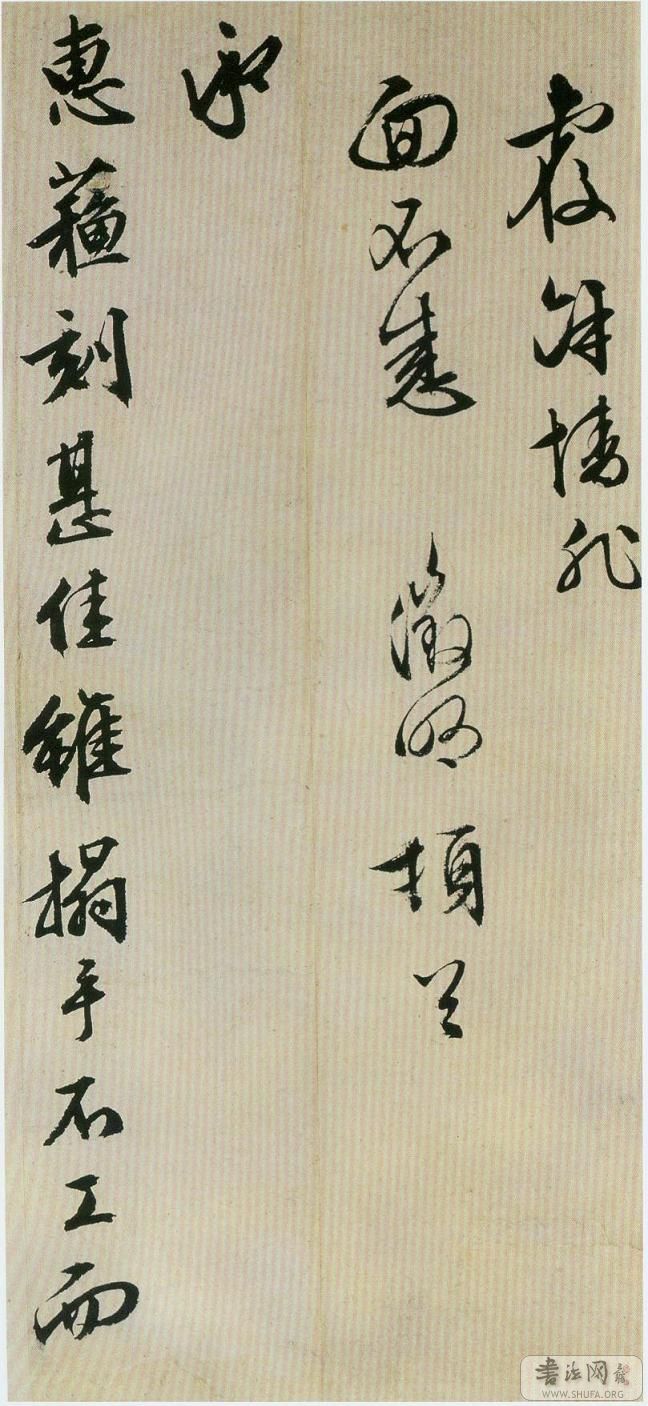 覆餘情非
面不悉 徵明頓首
承
惠蘓刻甚佳雖搨手不工而
書法网
WWW.SHUFA.ORG